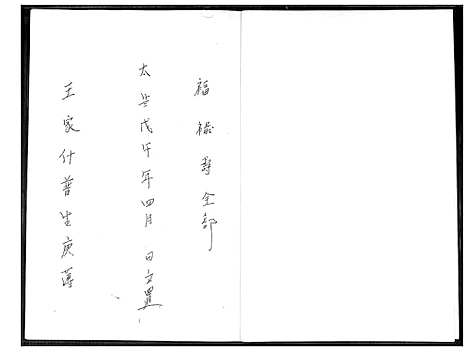 福祿壽全部
太歲戊午年四月 日立置
王家什普生庚簿